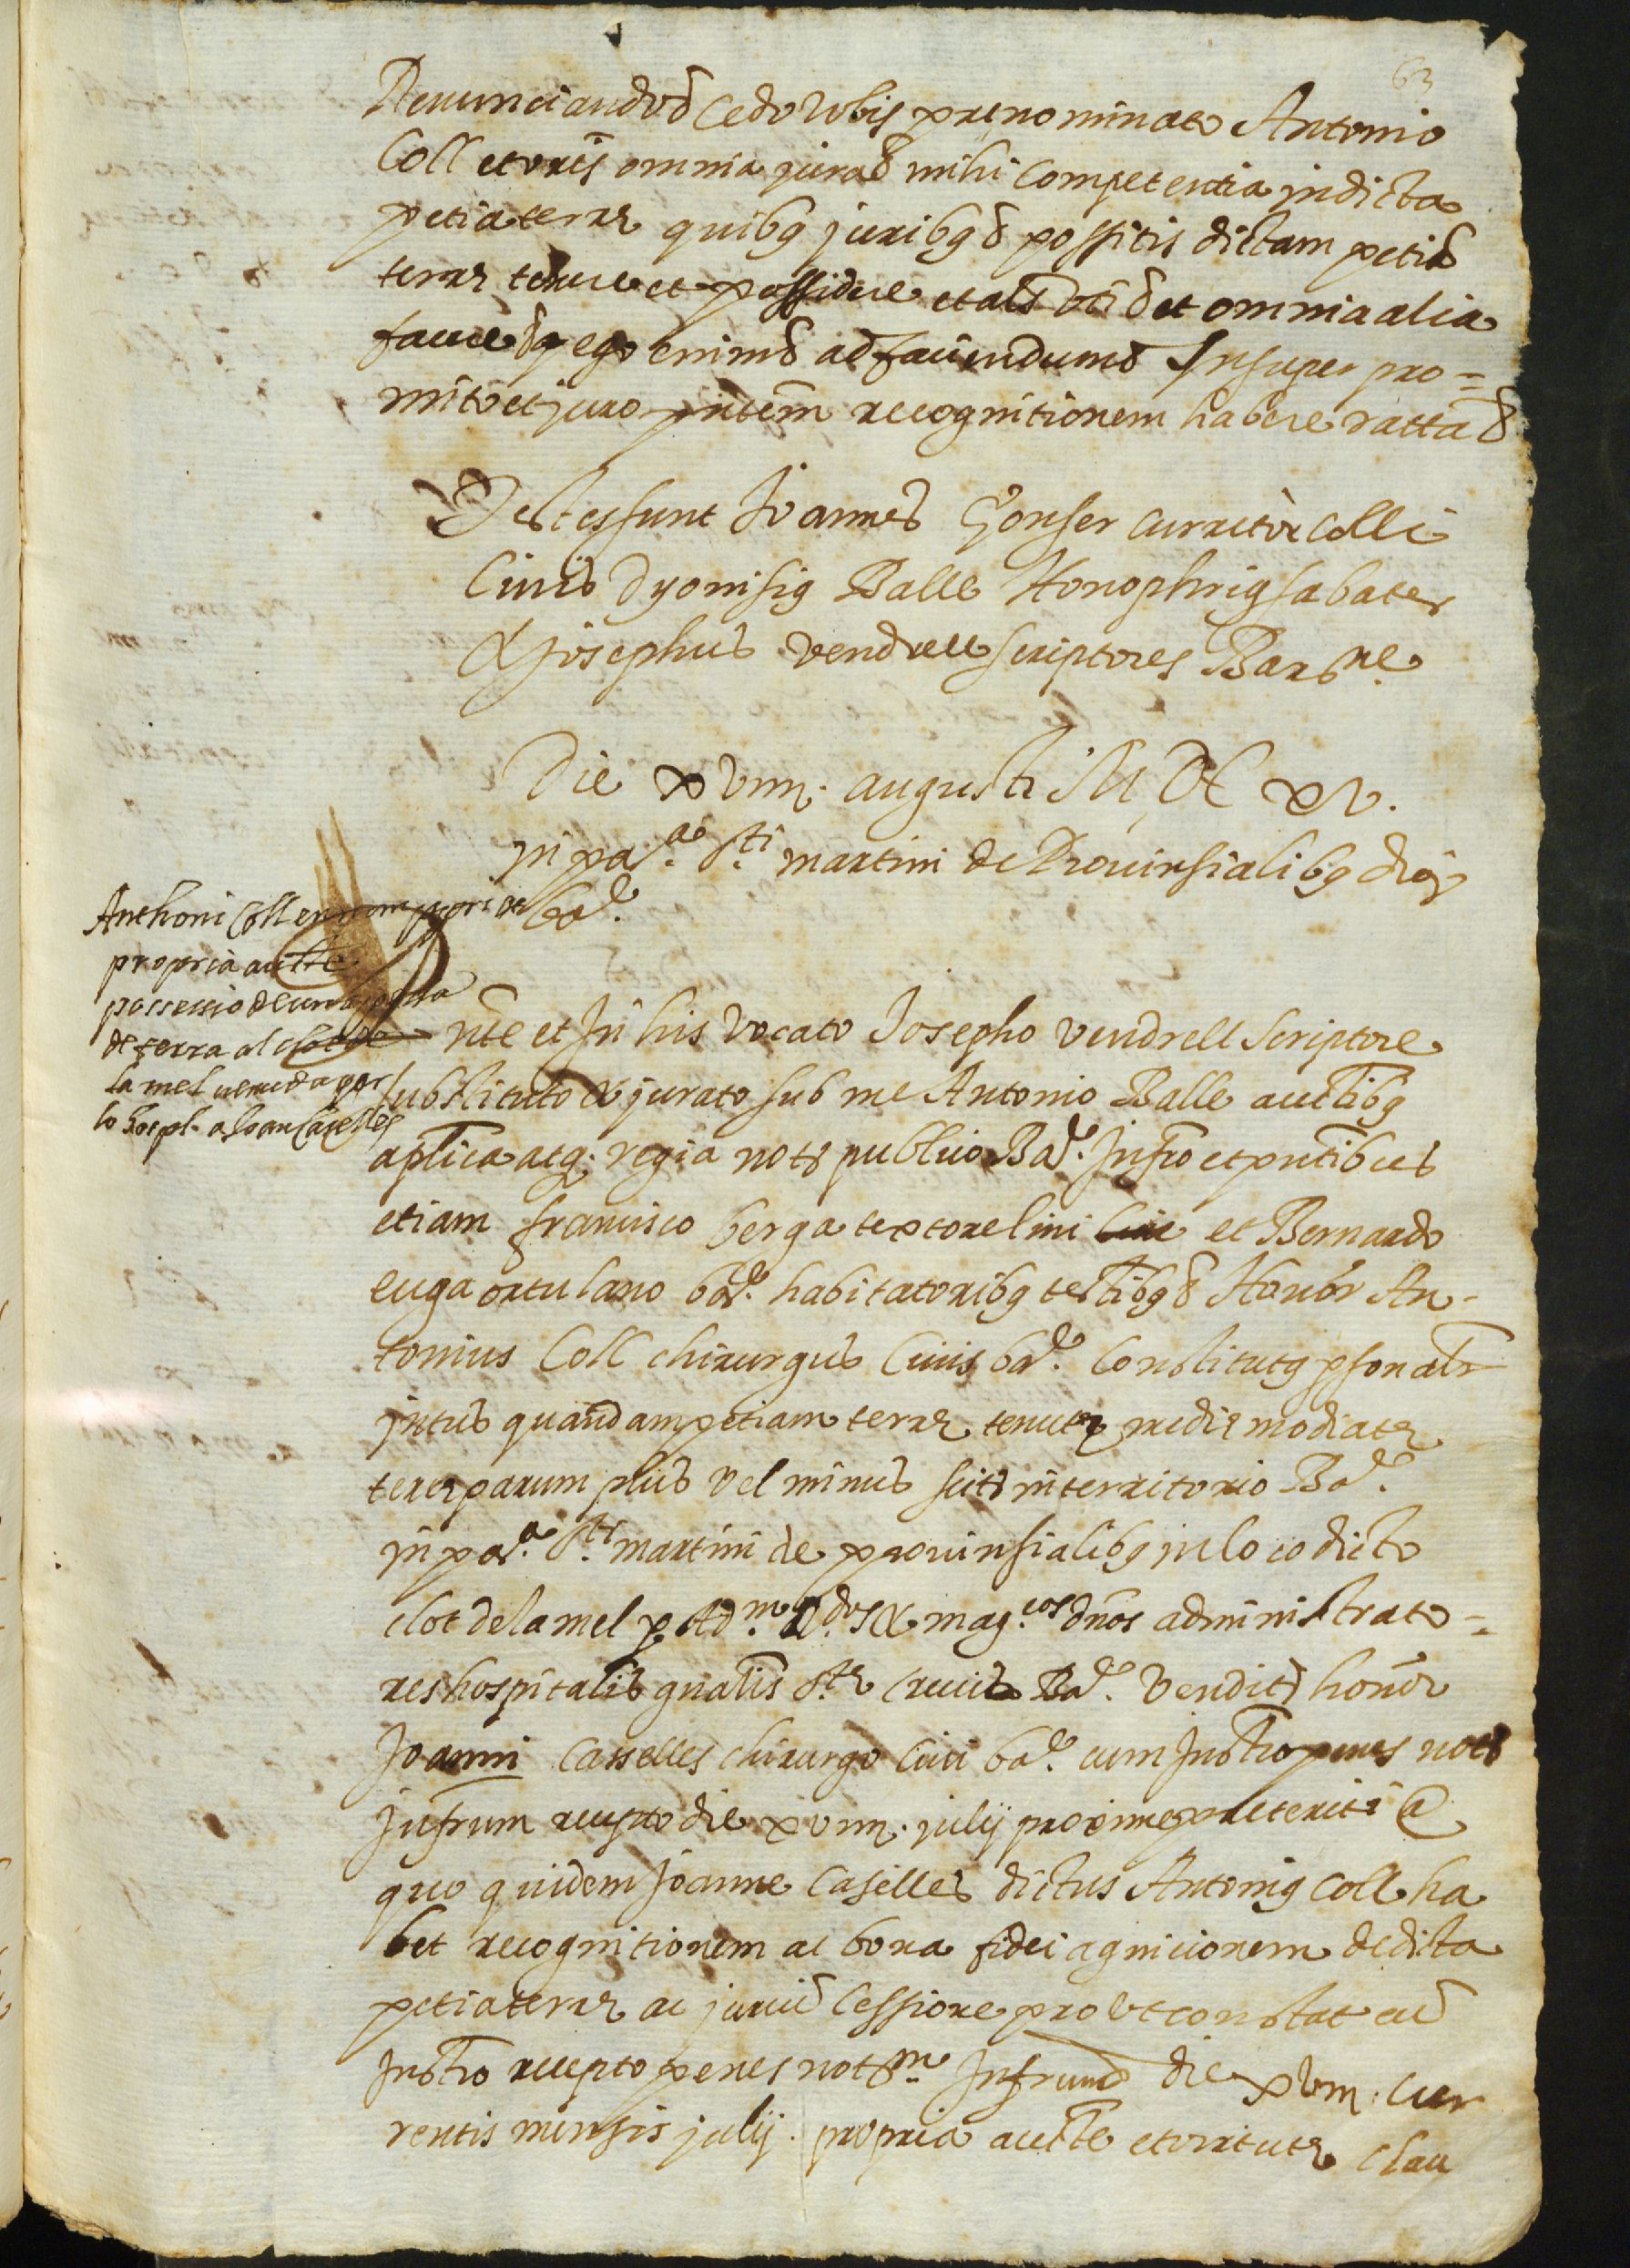 63
Renunciando &c Cedo vobis prenominato Antonio
Coll et vris omnia jura &c mihi Competentia in dicta
petia terræ quibg juribg &c possitis dictam petiã
terræ tenere et possidere et als uti &c et omnia alia
facere &c q ego enim &c ad faciendum &c Insuper pro=
mito et juro pntem recognitionem habere ratta &c
Testes sunt Joannes Gonser curritor colli
Civis Dyonisig Balle Honophrig sabater
& josephus vendrell scriptores Barne.
Die xviiij. augusti M DC xv.
in paa. Sti martini de Provinsialibg diog
bae.
Anthoni Coll
propria autte
possessio de una pessa
de terra al clot de
la mel venuda per
lo hospl. a Joan Caselles
nte et In his vocato Josepho vendrell scriptore
substituto & jurato sub me Antonio Balle auctibg
aplica atq. regia noto publico Bae. Infro et pntibus
etiam francisco berga textore lini et Bernardo
euga ortulano bae. habitatoribg testibg &c Honor An-
tonius Coll chirurgus Civis bae. Constitutg psonalr
intus quandam petiam terræ tenutæ medie modiatæ
terræ parum plus vel minus scite in territorio Bae.
in paa. Sti martini de provinsialibg in loco dicto
clot de la mel p Adm. Rdos & mag.cos dnos administrato=
res hospitalis gnalis Ste Crucis Bae. Vendite honor
Joanni Casselles chirurgo Civi bae. cum Instro penes noto
infrum recepto die xviiij. julij proxime preteriti @
quo quidem Joanne Caselles dictus Antonig Coll ha
bet recognitionem ac bona fidei agnicionem de dicta
petia terræ ac juriũ Cessione prout constat cũ
Instro recepto penes notm Infrum die xviij. Cur
rentis mensis julij. propria autte et virtute clau